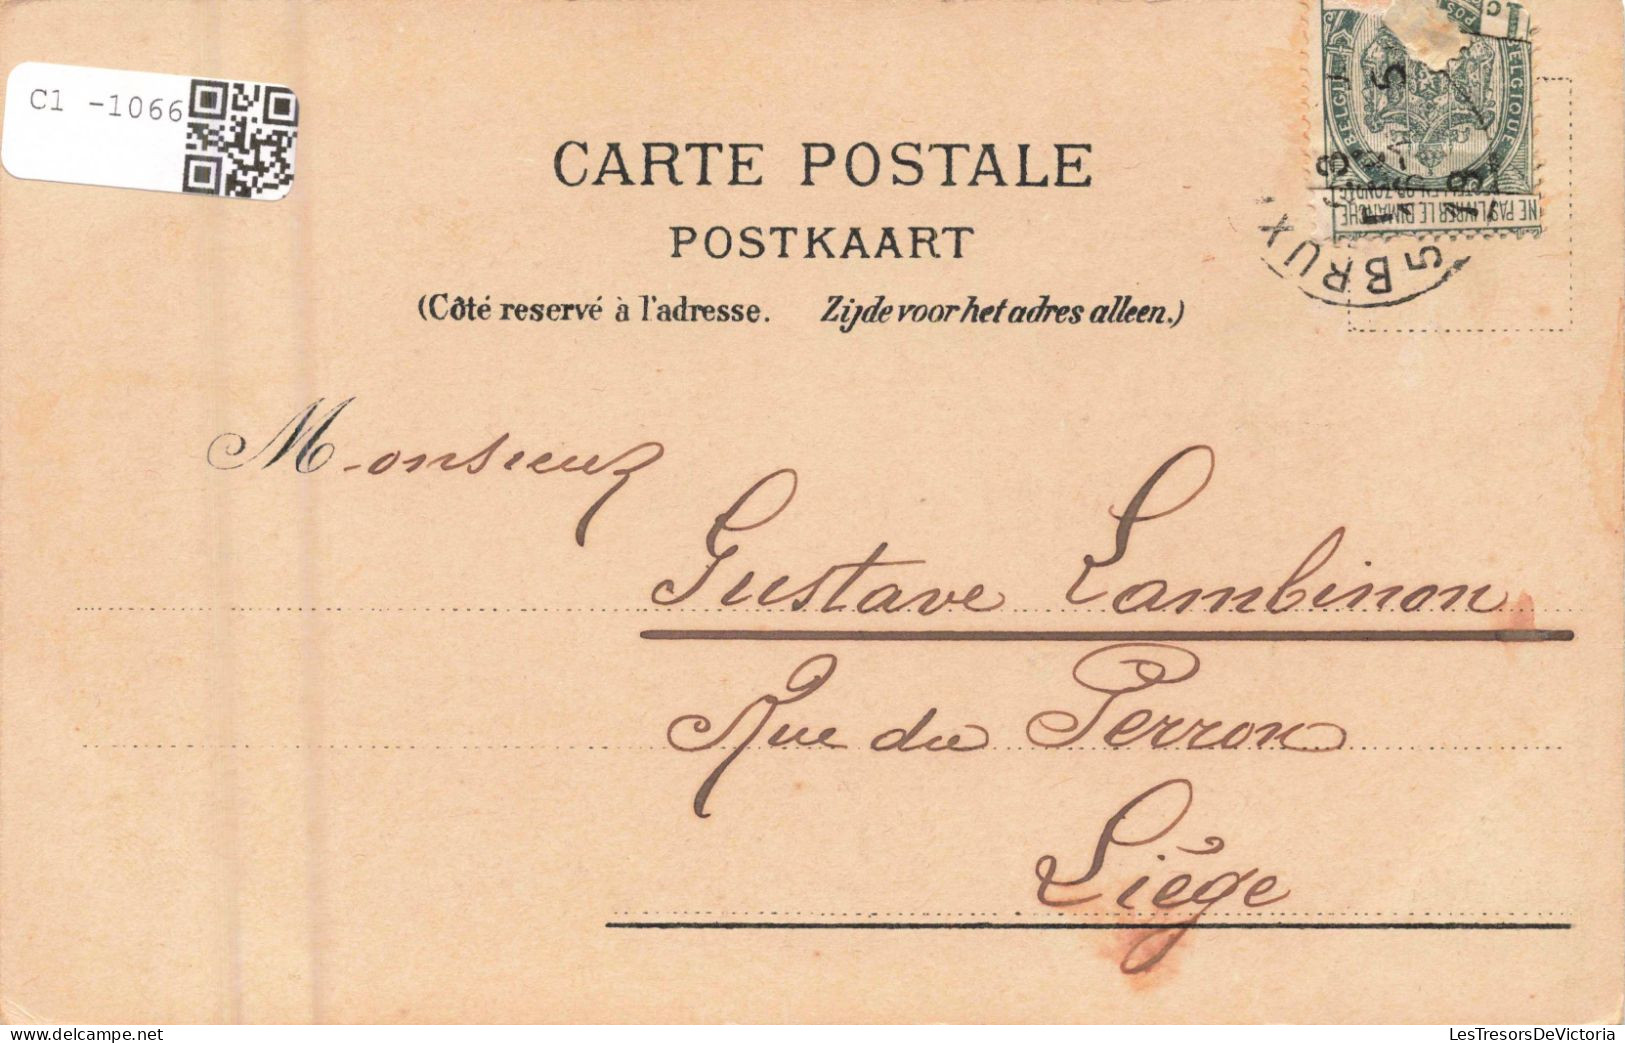 C1 -1066
CARTE POSTALE
POSTKAART
(Côté reservé à l'adresse. Zijde voor het adres alleen.)
BELGIQUE
NE PAS LIVRER LE DIMANCHE
BRUX
5
Monsieur
Gustave Lambinon
Rue du Perron
Liége
LesTresorsDeVictoria